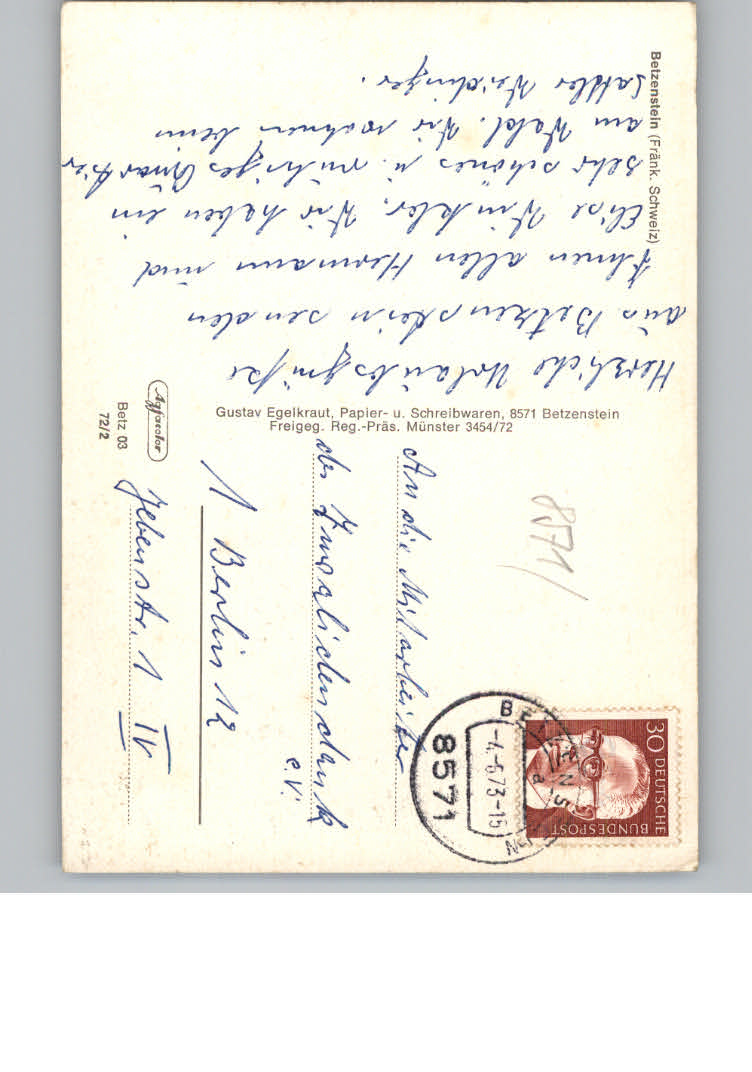 Betzenstein (Fränk. Schweiz)
Herzliche Urlaubsgrüße
aus Betzenstein senden
Ihnen allen Hermann und
Elise Winkler. Wir haben ein
sehr schönes u. ruhiges Quartier
am Wald. Wir wohnen beim
Sattler Weidinger.
Gustav Egelkraut, Papier- u. Schreibwaren, 8571 Betzenstein
Freigeg. Reg.-Präs. Münster 3454/72
Agfacolor
Betz 03
72/2
8571/
30 DEUTSCHE
BUNDESPOST
BETZENSTEIN
a
-4.-6.73-15
8571
An die Mitarbeiter
des Invalidendank
e.V.
1 Berlin 12
Jebenstr. 1 IV